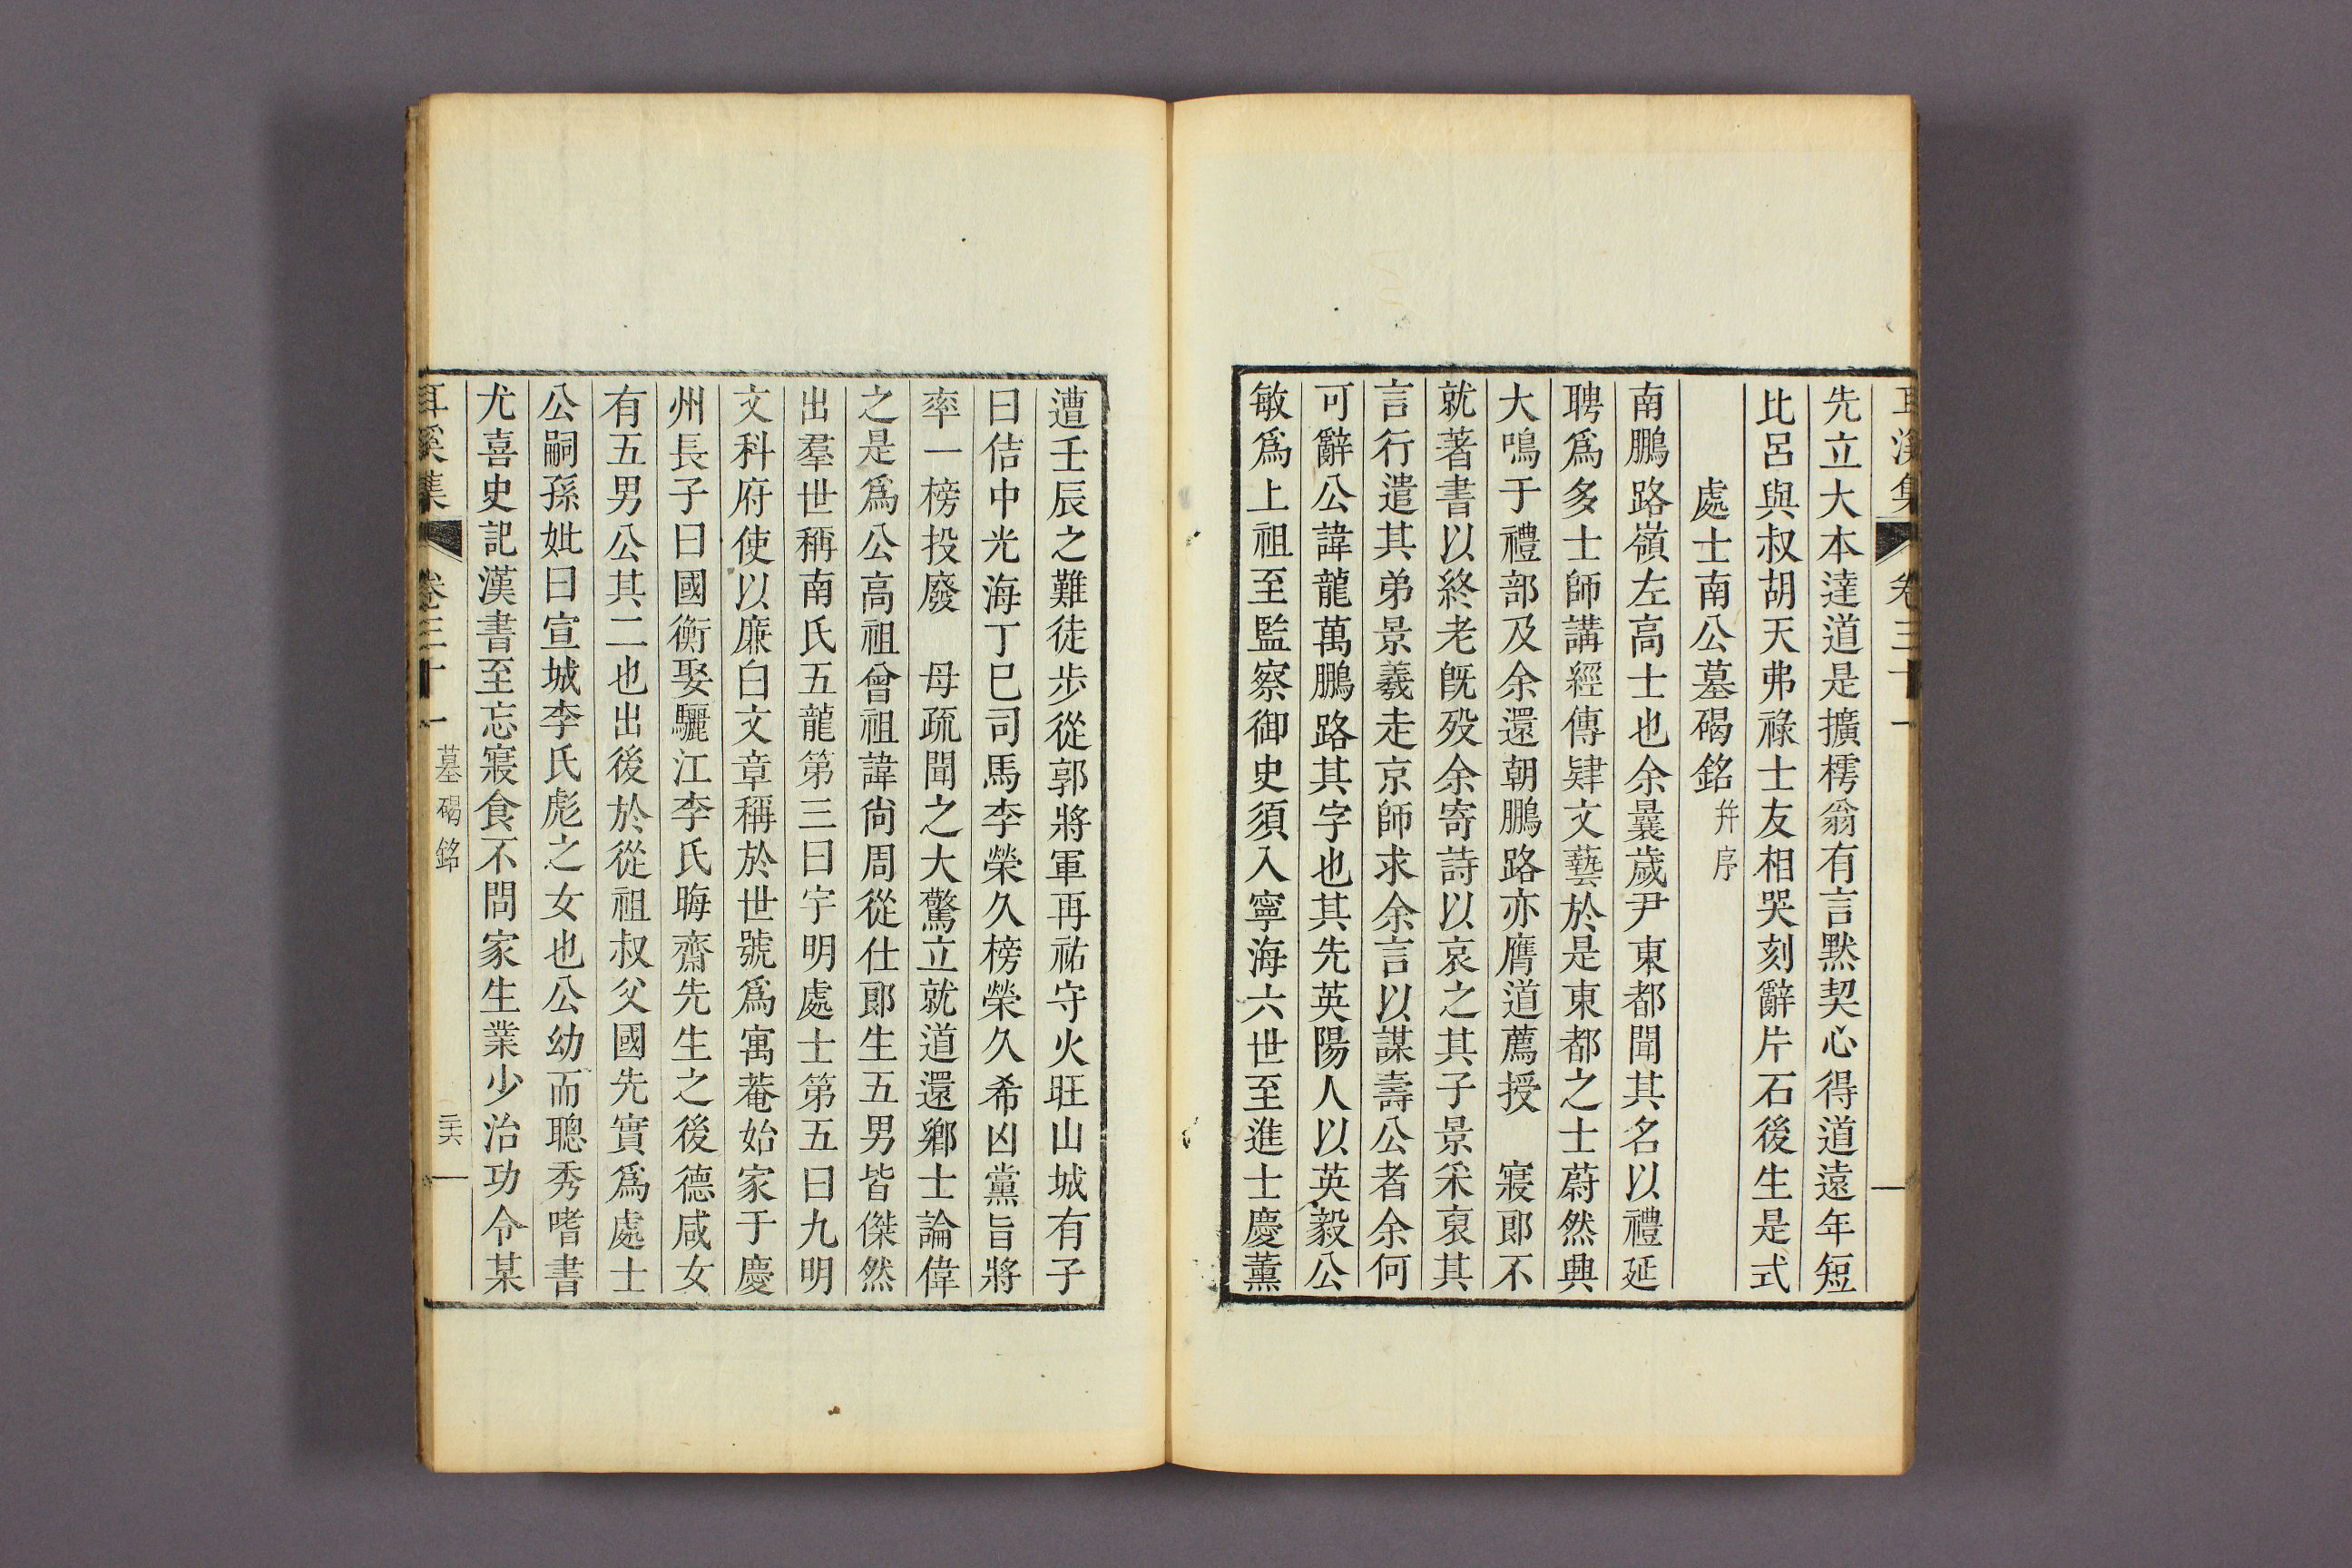 耳溪集 卷三十一
先立大本達道是擴樗翁有言黙契心得道遠年短
比呂與叔胡天弗祿士友相哭刻辭片石後生是式
處士南公墓碣銘 幷序
南鵬路嶺左高士也余曩歲尹東都聞其名以禮延
聘爲多士師講經傳肄文藝於是東都之士蔚然興
大鳴于禮部及余還朝鵬路亦膺道薦授 寢郞不
就著書以終老旣歿余寄詩以哀之其子景采裒其
言行遣其弟景羲走京師求余言以謀壽公者余何
可辭公諱龍萬鵬路其字也其先英陽人以英毅公
敏爲上祖至監察御史須入寧海六世至進士慶薰
遭壬辰之難徒步從郭將軍再祐守火旺山城有子
曰佶中光海丁巳司馬李榮久榜榮久希凶黨旨將
率一榜投廢 母疏聞之大驚立就道還鄕士論偉
之是爲公高祖曾祖諱尙周從仕郞生五男皆傑然
出羣世稱南氏五龍第三曰宇明處士第五曰九明
文科府使以廉白文章稱於世號爲寓菴始家于慶
州長子曰國衡娶驪江李氏晦齋先生之後德咸女
有五男公其二也出後於從祖叔父國先實爲處士
公嗣孫妣曰宣城李氏彪之女也公幼而聰秀嗜書
尤喜史記漢書至忘寢食不問家生業少治功令某
耳溪集 卷三十一 墓碣銘 三六